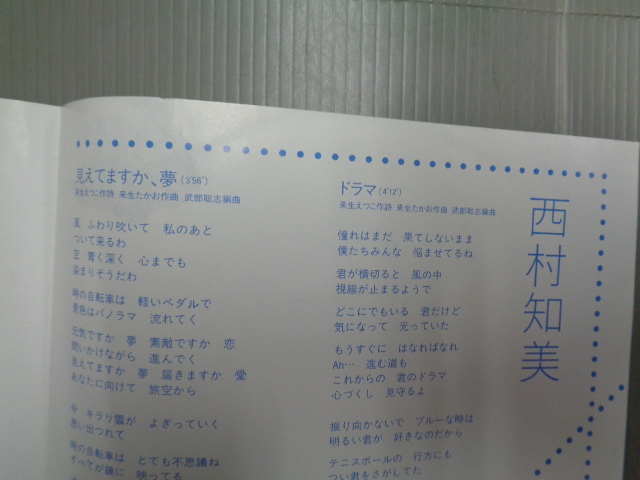 見えてますか、夢(3'56")
来生えつこ作詩 来生たかお作曲 武部聡志編曲
風 ふわり吹いて 私のあと
ついて来るわ
空 青く深く 心までも
染まりそうだわ
時の自転車は 軽いペダルで
景色はパノラマ 流れてく
元気ですか 夢 素敵ですか 恋
問いかけながら 進んでく
見えてますか 夢 届きますか 愛
あなたに向けて 旅空から
今 キラリ雲が よぎっていく
思い出つれて
時の自転車は とても不思議ね
すべてが鏡に 映ってる
ドラマ(4'12")
来生えつこ作詩 来生たかお作曲 武部聡志編曲
憧れはまだ 果てしないまま
僕たちみんな 悩ませてるね
君が横切ると 風の中
視線が止まるようで
どこにでもいる 君だけど
気になって 光っていた
もうすぐに はなればなれ
Ah… 進む道も
これからの 君のドラマ
心づくし 見守るよ
振り向かないで ブルーな時は
明るい君が 好きなのだから
テニスボールの 行方にも
つい君をさがしてた
西村知美